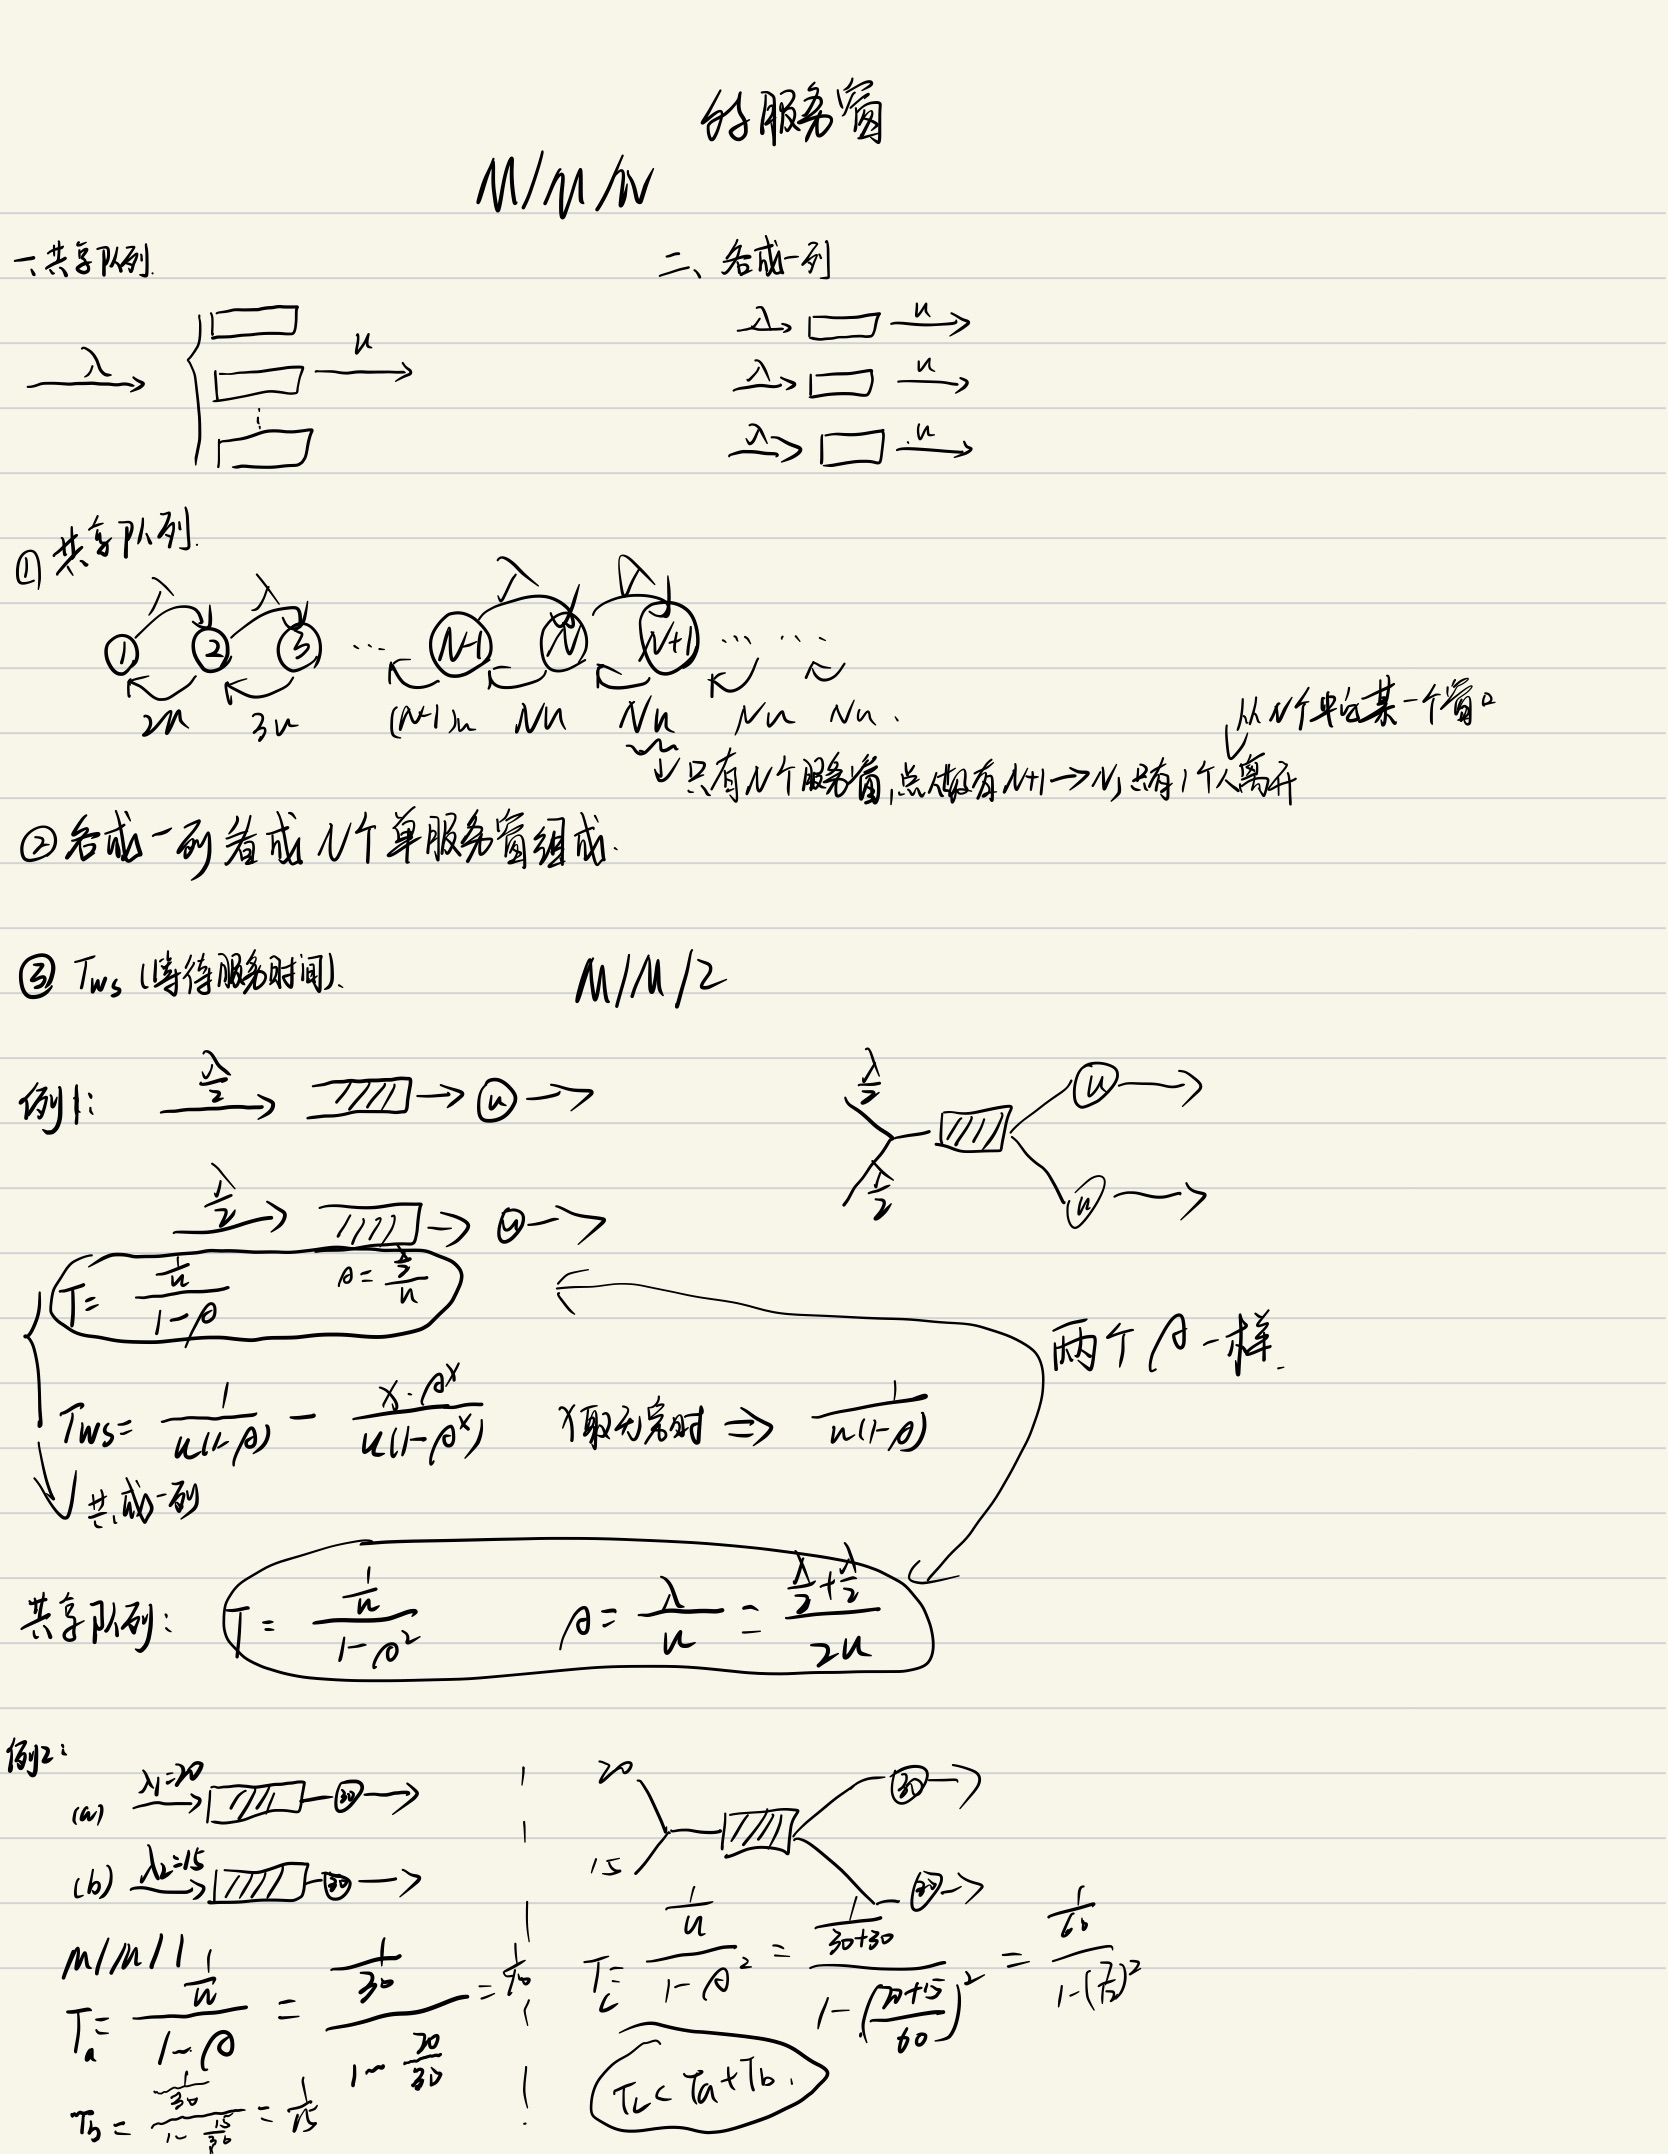 的服务窗
M/M/N
一、共享队列.
二、各成一列
λ u
λ u
λ u
λ u
① 共享队列.
λ λ λ λ
1 2 3 ... N-1 N N+1 ... ...
2u 3u (N-1)u Nu Nu Nu Nu.
从N个中的某一个窗口
只有N个服务窗, N+1→N, 只有1个人离开
② 各成一列看成N个单服务窗组成.
③ Tws (等待服务时间).
M/M/2
例1: λ/2 u
λ/2 u
λ/2 u
λ/2 u
T = (1/u)/(1-ρ) ρ = (λ/2)/u
两个ρ一样.
Tws = 1/(u(1-ρ)) - (x·ρ^x)/(u(1-ρ^x)) x取无穷时 ⇒ 1/(u(1-ρ))
共成一列
共享队列: T = (1/u)/(1-ρ²) ρ = λ/u = (λ/2+λ/2)/2u
例2:
(a) λ1=20 30
(b) λ2=15 30
20 30
15 30
M/M/1
Ta = (1/u)/(1-ρ) = (1/30)/(1-20/30) = 1/10
Tc = (1/u)/(1-ρ²) = (1/(30+30))/(1-((20+15)/60)²) = (1/60)/(1-(7/12)²)
Tb = (1/30)/(1-15/30) = 1/15
Tc < Ta+Tb.